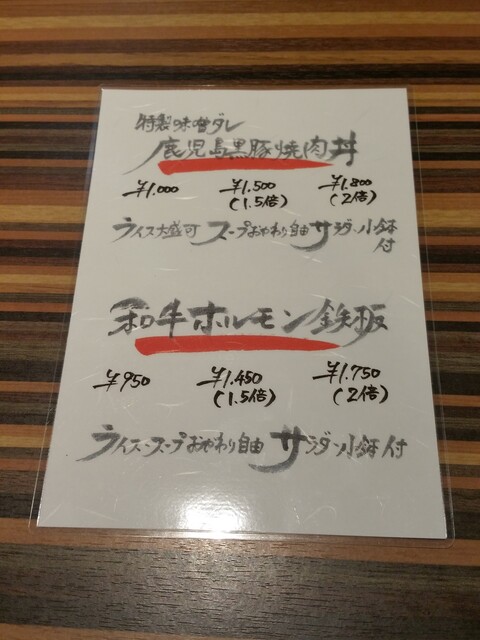 特製味噌ダレ
鹿児島黒豚焼肉丼
¥1.000 ¥1.500 ¥1.800
(1.5倍) (2倍)
ライス大盛可 スープおかわり自由 サラダ・小鉢付
和牛ホルモン鉄板
¥950 ¥1.450 ¥1.750
(1.5倍) (2倍)
ライス・スープおかわり自由 サラダ・小鉢付